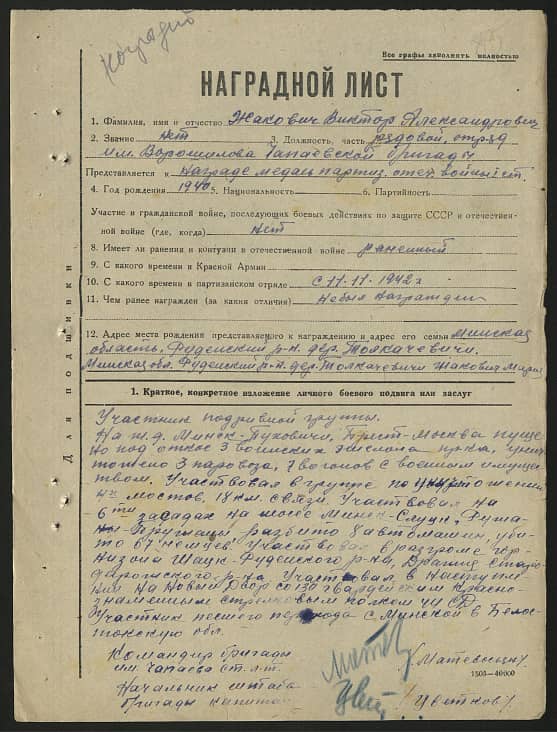 Наградить
Все графы заполнять полностью
НАГРАДНОЙ ЛИСТ
1. Фамилия, имя и отчество Жакович Виктор Александрович
2. Звание нет 3. Должность, часть рядовой, отряд
им. Ворошилова Чапаевской бригады
Представляется к награде медаль партиз. отеч. войны I ст.
4. Год рождения 1940 5. Национальность 6. Партийность
Участие в гражданской войне, последующих боевых действиях по защите СССР и отечествен-
ной войне (где, когда) нет
8. Имеет ли ранения и контузии в отечественной войне раненный
9. С какого времени в Красной Армии
10. С какого времени в партизанском отряде с 11-11-1942 г
11. Чем ранее награжден (за какия отличия) небыл награжден
12. Адрес места рождения представляемого к награждению и адрес его семьи Минская
область, Руденский р-н. дер. Толкачевичи.
Минская обл. Руденский р-н. дер. Толкачевичи Жакович Мария
Для подшивки
1. Краткое, конкретное изложение личного боевого подвига или заслуг
Участник подрывной группы.
На ж.д. Минск-Пуховичи, Брест-Москва пуще
но под откос 3 воинских эшелона пр-ка, унич
тожено 3 паровоза, 7 вогонов с военным имущес
твом. Участвовал в группе по уничтожении
4х мостов, 18 км. связи. Участвовал на
6ти засадах на шосе Минск-Слуцк,
разбито 8 автомашин, уби
то 67 немцев. Участвовал в разгроме гар-
низона Шацк-Руденского р-на, Старо
дорожского р-на. Участвовал в наступле
нии на Новый Двор со 130 гвардейским Красно-
знаменным стрелковым полком 44 СД
Участник пешего перехода с Минской в Белос-
токскую обл.
Командир бригады
им. Чапаева ст. л-т. /Матевосян/
1505—40000
Начальник штаба
бригады капитан /Цветков/